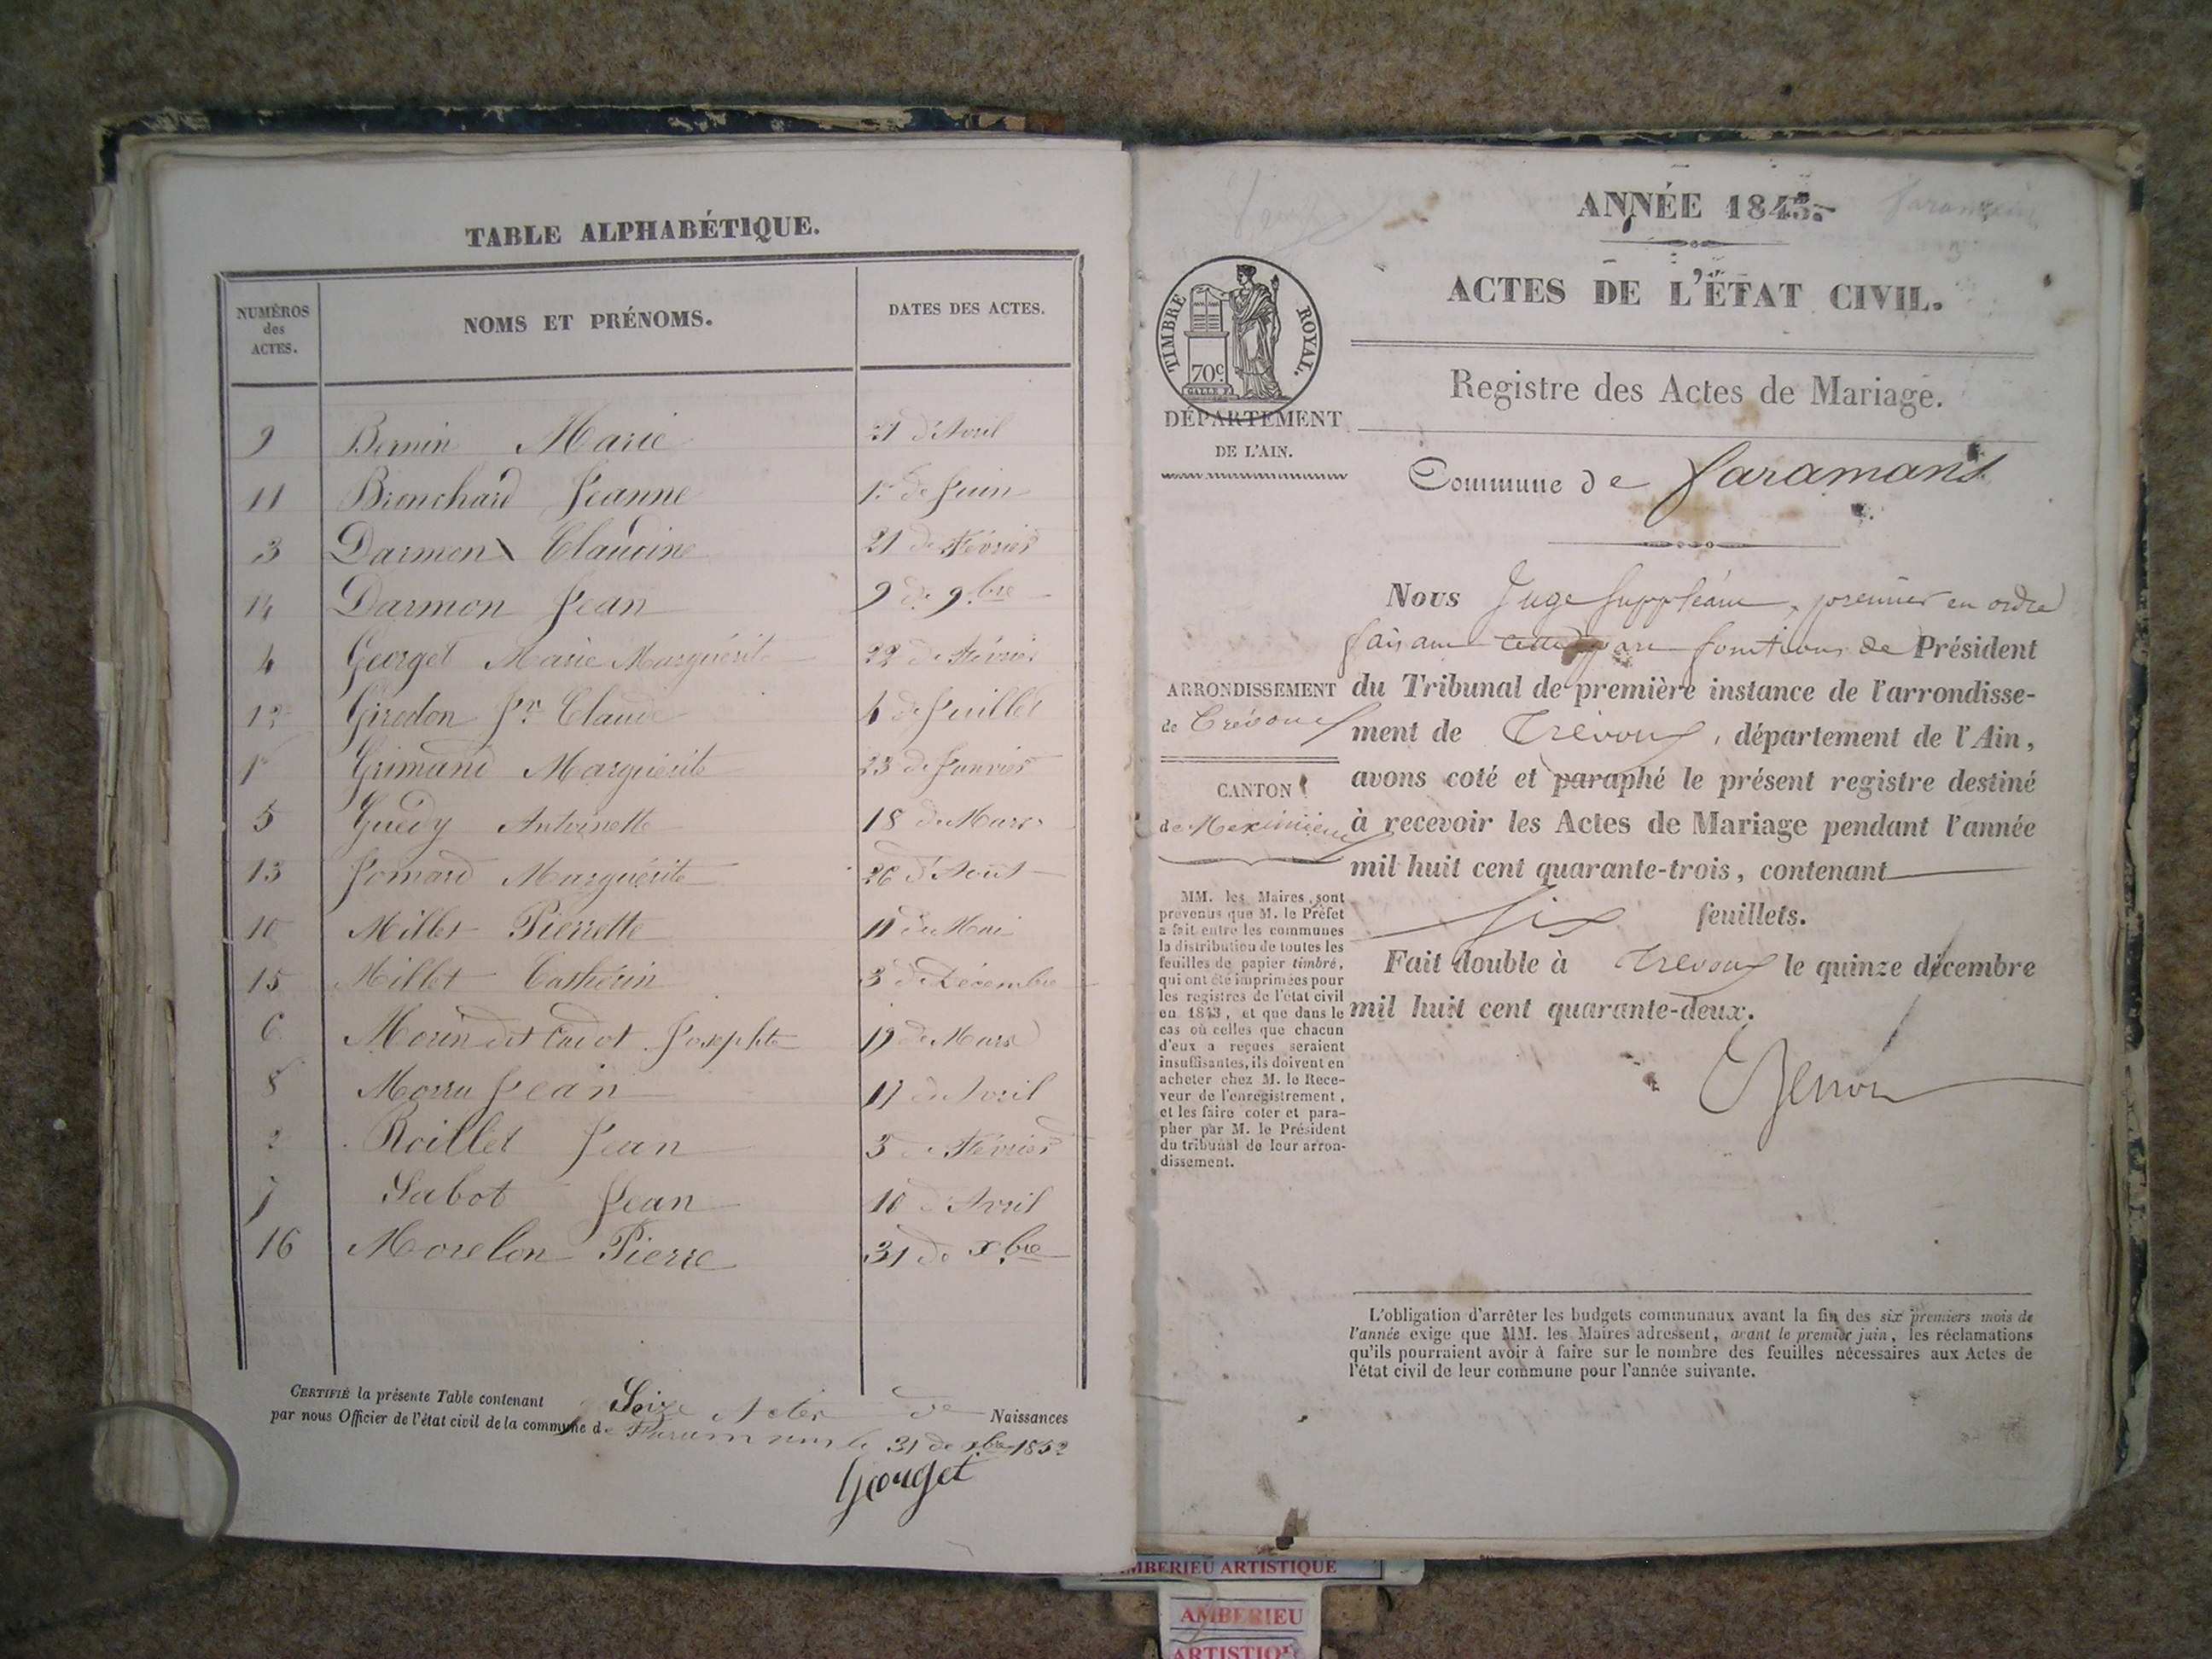 TABLE ALPHABÉTIQUE.
NUMÉROS des ACTES. NOMS ET PRÉNOMS. DATES DES ACTES.
9 Bernin Marie 21 d'Avril
11 Bronchard Jeanne 1er de Juin
3 Darmon Claudine 21 de Février
14 Darmon Jean 9 de 9bre
4 Georget Marie Marguérite 22 de Février
12 Girodon Claude 4 de Juillet
1er Grimand Marguérite 23 de Janvier
5 Guédy Antoinette 18 de Mars
13 Jomard Marguérite 26 d'Août
10 Millet Pierrette 11 de Mai
15 Millet Cathérin 3 de Décembre
6 Morin dit Josephte 19 de Mars
8 Morru Jean 11 d'Avril
2 Roillet Jean 5 de Février
7 Sabot Jean 10 d'Avril
16 Morelon Pierre 31 de Xbre
CERTIFIÉ la présente Table contenant Seize Actes de Naissances
par nous Officier de l'état civil de la commune de 31 de Xbre
Georget
ANNÉE 1843.
ACTES DE L'ÉTAT CIVIL.
TIMBRE ROYAL.
70c
Registre des Actes de Mariage.
DÉPARTEMENT
DE L'AIN.
Commune de Faramans
Nous Juge Suppléant, premier en ordre
faisant fonctions de Président
du Tribunal de première instance de l'arrondisse-
ment de Trévoux, département de l'Ain,
avons coté et paraphé le présent registre destiné
à recevoir les Actes de Mariage pendant l'année
mil huit cent quarante-trois, contenant
six feuillets.
Fait double à Trévoux le quinze décembre
mil huit cent quarante-deux.
ARRONDISSEMENT
de Trévoux
CANTON
de Meximieux
MM. les Maires sont
prévenus que M. le Préfet
a fait entre les communes
la distribution de toutes les
feuilles de papier timbré,
qui ont été imprimées pour
les registres de l'état civil
en 1843, et que dans le
cas où celles que chacun
d'eux a reçues seraient
insuffisantes, ils doivent en
acheter chez M. le Rece-
veur de l'enregistrement,
et les faire coter et para-
pher par M. le Président
du tribunal de leur arron-
dissement.
L'obligation d'arrêter les budgets communaux avant la fin des six premiers mois de
l'année exige que MM. les Maires adressent, avant le premier juin, les réclamations
qu'ils pourraient avoir à faire sur le nombre des feuilles nécessaires aux Actes de
l'état civil de leur commune pour l'année suivante.
MBERIEU ARTISTIQUE
AMBERIEU
ARTISTIQU